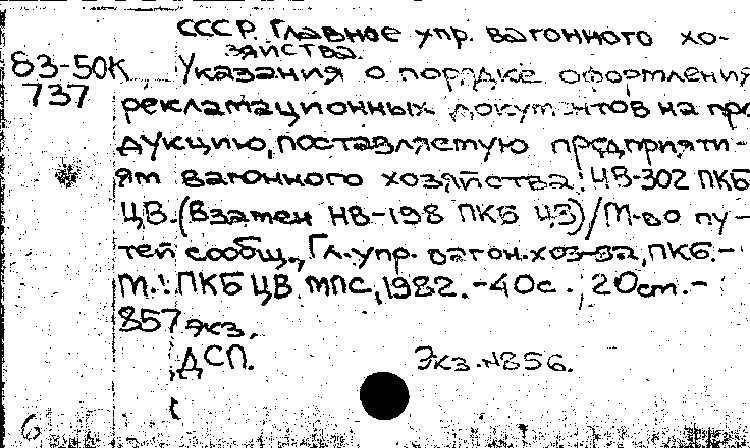 СССР. Главное упр. вагонного хо-
зяйства.
83-50К Указания о порядке оформления
737
рекламационных документов на про
дукцию, поставляемую предприяти-
ям вагонного хозяйства: ЦВ-302 ПКБ
ЦВ. (Взамен НВ-198 ПКБ ЦВ)/М-во пу-
тей сообщ., Гл. упр. вагон. хоз-ва, ПКБ.-
М.: ПКБ ЦВ МПС, 1982.-40с.; 20см.-
857 экз.
ДСП. Экз.N856.
6